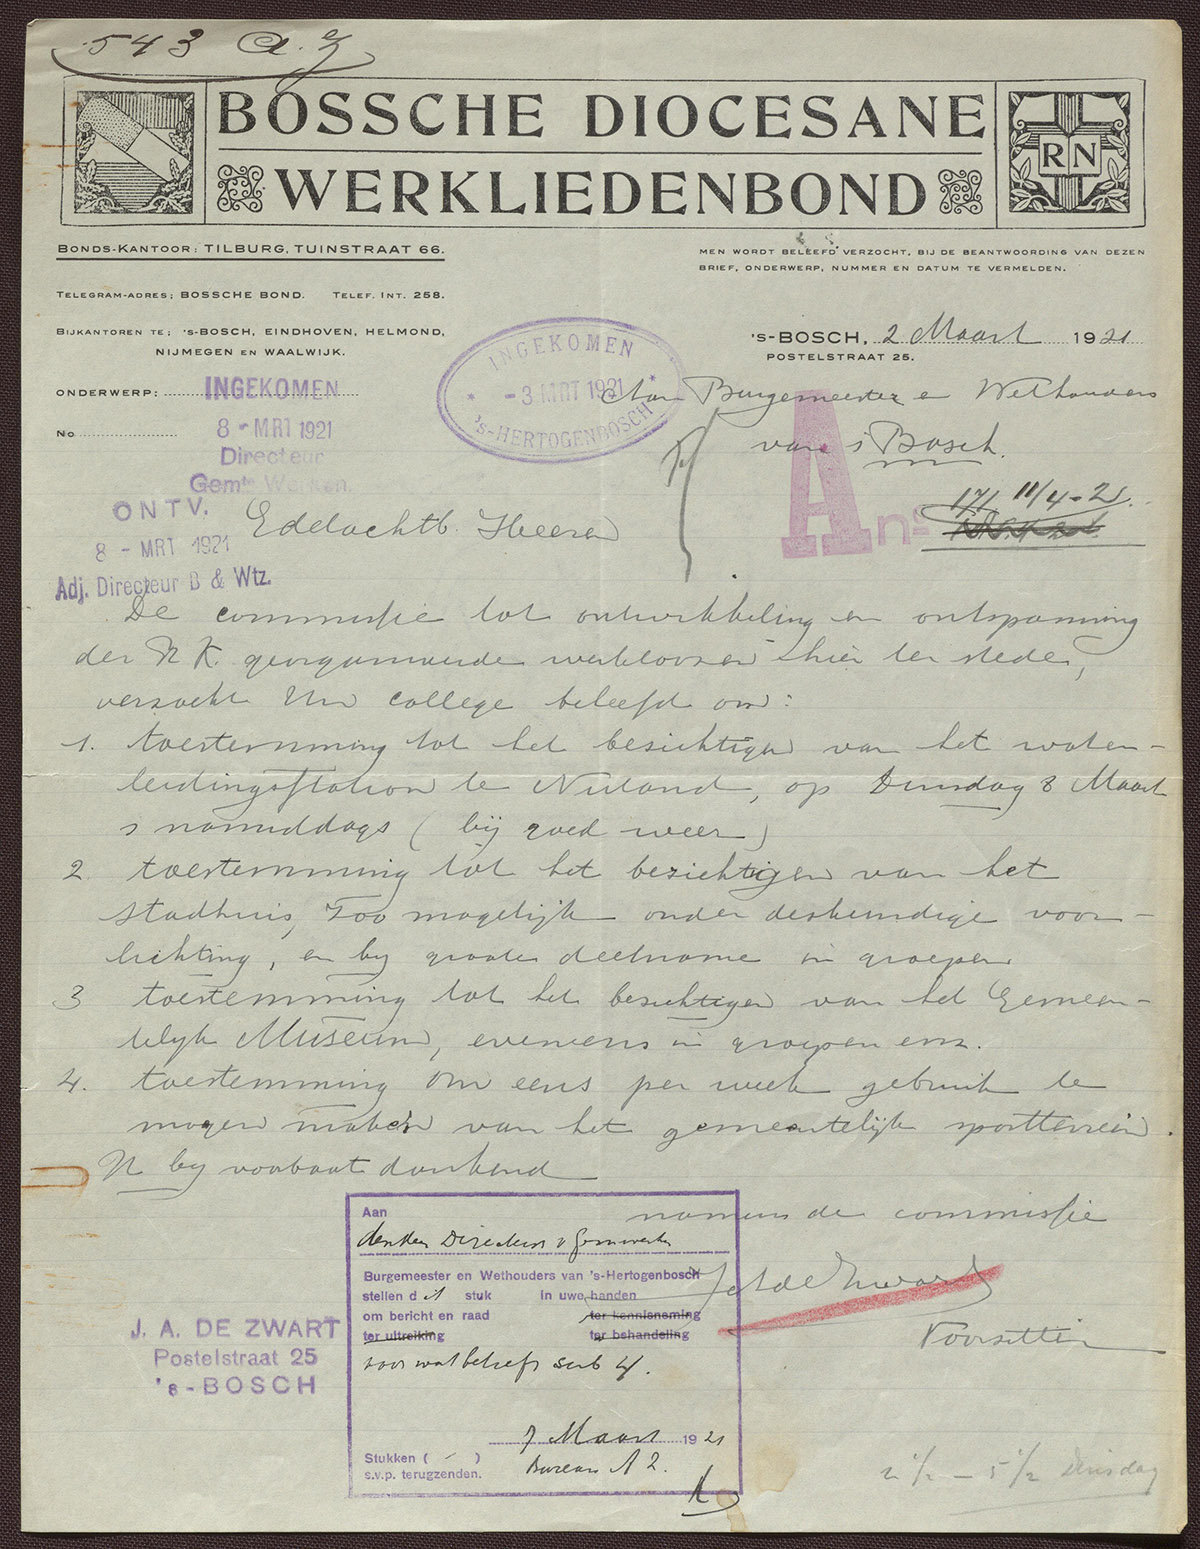 543 A.Z
BOSSCHE DIOCESANE
WERKLIEDENBOND
RN
BONDS-KANTOOR: TILBURG, TUINSTRAAT 66.
MEN WORDT BELEEFD VERZOCHT, BIJ DE BEANTWOORDING VAN DEZEN
BRIEF, ONDERWERP, NUMMER EN DATUM TE VERMELDEN.
TELEGRAM-ADRES; BOSSCHE BOND. TELEF. INT. 258.
BIJKANTOREN TE; 's-BOSCH, EINDHOVEN, HELMOND,
NIJMEGEN EN WAALWIJK.
's-BOSCH, 2 Maart 1921
POSTELSTRAAT 25.
ONDERWERP:
No
INGEKOMEN
8 - MRT 1921
Directeur
Gemte Werken.
INGEKOMEN
- 3 MRT 1921
's-HERTOGENBOSCH
Aan Burgemeester en Wethouders
van 's Bosch.
A no
171 11/4-21.
ONTV.
8 - MRT 1921
Adj. Directeur B & Wtz.
Edelachtb. Heeren
De commissie tot ontwikkeling en ontspanning
der R K. georganiseerde werkloozen hier ter stede,
verzoekt Uw college beleefd om:
1. toestemming tot het bezichtigen van het water-
leidingsstation te Nuland, op Dinsdag 8 Maart
s namiddags (bij goed weer)
2. toestemming tot het bezichtigen van het
stadhuis, zoo mogelijk onder deskundige voor-
lichting, en by groote deelname in groepen
3 toestemming tot het bezichtigen van het Gemeen-
telijk Museum, eveneens in groepen enz.
4. toestemming om eens per week gebruik te
mogen maken van het gemeentelijk sportterrein.
U by voorbaat dankend
namens de commissie
J A de Zwart
Voorzitter
J. A. DE ZWART
Postelstraat 25
's-BOSCH
Aan
den Heer Directeur v Gemwerken
Burgemeester en Wethouders van 's-Hertogenbosch
stellen dit stuk in uwe handen
om bericht en raad ter kennisneming
ter uitreiking ter behandeling
voor wat betreft sub 4.
7 Maart 1921
Bureau A 2.
Stukken ( - )
s.v.p. terugzenden.
2 1/2 - 5 1/2 Dinsdag